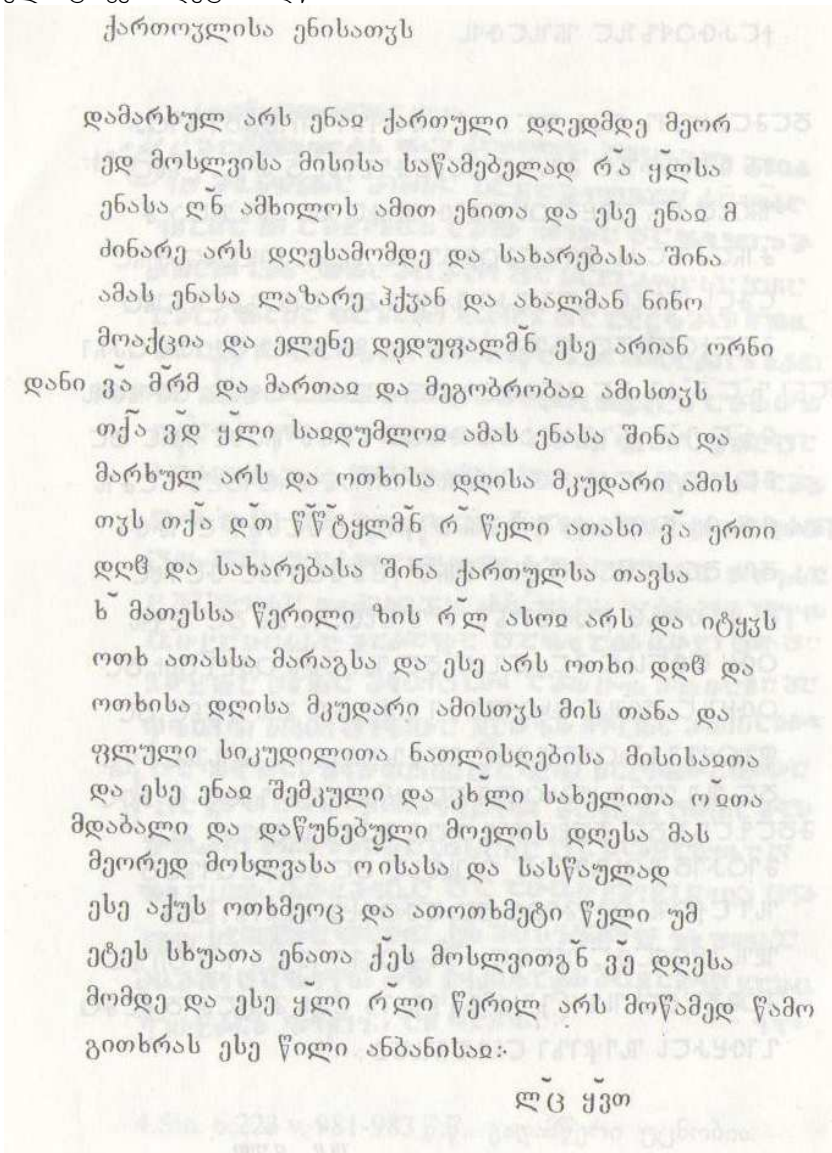 ქართოჳლისა ენისათჳს
დამარხულ არს ენაჲ ქართული დღედმდე მეორ
ედ მოსლვისა მისისა საწამებელად რ~ა ყ~ლსა
ენასა ღ~ნ ამხილოს ამით ენითა და ესე ენაჲ მ
ძინარე არს დღესამომდე და სახარებასა შინა
ამას ენასა ლაზარე ჰქჳან და ახალმან ნინო
მოაქცია და ელენე დედუფალმ~ნ ესე არიან ორნი
დანი ვ~ა მ~რმ და მართაჲ და მეგობრობაჲ ამისთჳს
თქ~ა ვ~დ ყ~ლი საჲდუმლოჲ ამას ენასა შინა და
მარხულ არს და ოთხისა დღისა მკუდარი ამის
თჳს თქ~ა დ~თ წ~წ~ტყლმ~ნ რ~ წელი ათასი ვ~ა ერთი
დღჱ და სახარებასა შინა ქართულსა თავსა
ხ~ მათესსა წერილი ზის რ~ლ ასოჲ არს და იტყჳს
ოთხ ათასსა მარაგსა და ესე არს ოთხი დღჱ და
ოთხისა დღისა მკუდარი ამისთჳს მის თანა და
ფლული სიკუდილითა ნათლისღებისა მისისაჲთა
და ესე ენაჲ შემკული და კ~ხლი სახელითა ო~ჲთა
მდაბალი და დაწუნებული მოელის დღესა მას
მეორედ მოსლვასა ო~ისასა და სასწაულად
ესე აქუს ოთხმეოც და ათოთხმეტი წელი უმ
ეტეს სხუათა ენათა ქ~ეს მოსლვითგ~ნ ვ~ე დღესა
მომდე და ესე ყ~ლი რ~ლი წერილ არს მოწამედ წამო
გითხრას ესე წილი ანბანისაჲ:
ლ~ც ყ~ვთ